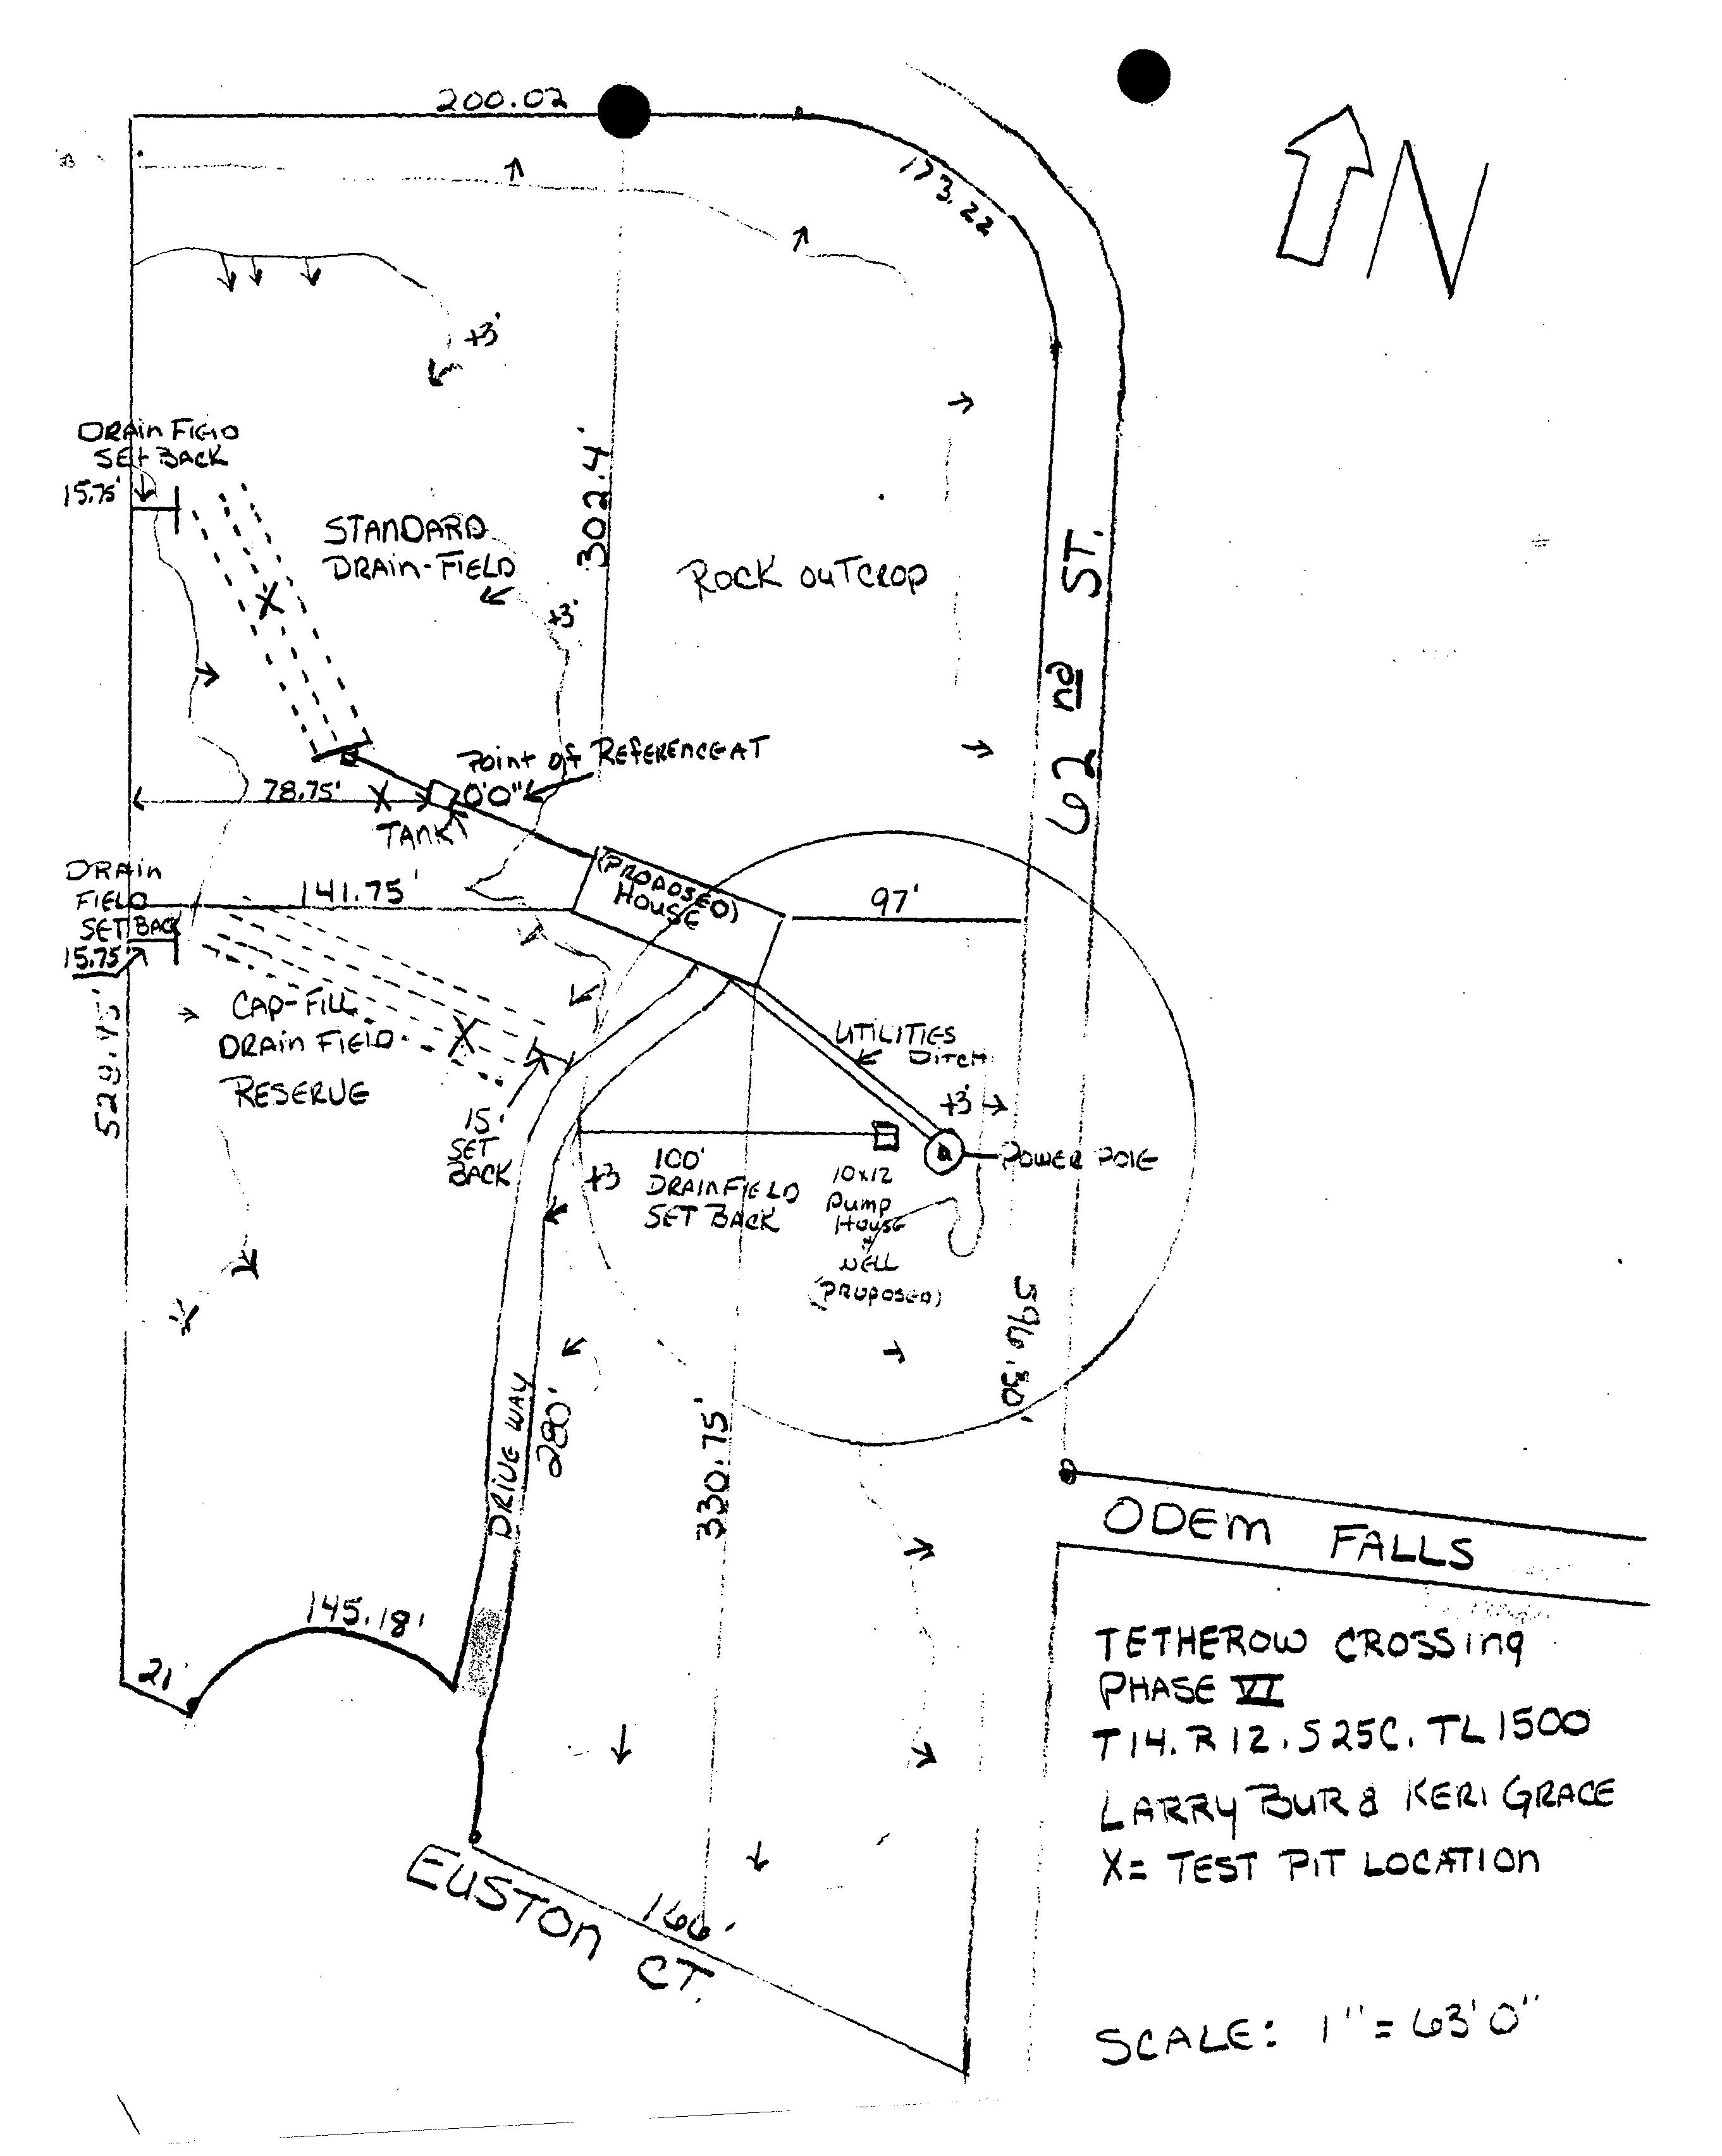 200.02
173.22
N
+3'
DRAIN FIELD
SET BACK
15.75'
STANDARD
DRAIN-FIELD
302.4'
ROCK OUTCROP
+3'
62 nd ST.
Point of REFERENCE AT
0'0"
78.75'
X
TANK
X
DRAIN
FIELD
SET BACK
15.75'
141.75'
(PROPOSED)
HOUSE
97'
CAP-FILL
DRAIN FIELD
RESERVE
X
UTILITIES
DITCH
+3'
POWER POLE
15'
SET
BACK
+3
100'
DRAINFIELD
SET BACK
10x12
Pump
House
WELL
(PROPOSED)
596.30'
DRIVE WAY
280'
330.75'
ODEM FALLS
145.18'
21'
TETHEROW CROSSING
PHASE VI
T14. R12. S25C. TL1500
LARRY BUR & KERI GRACE
X= TEST PIT LOCATION
EUSTON CT.
166'
SCALE: 1"= 63'0"